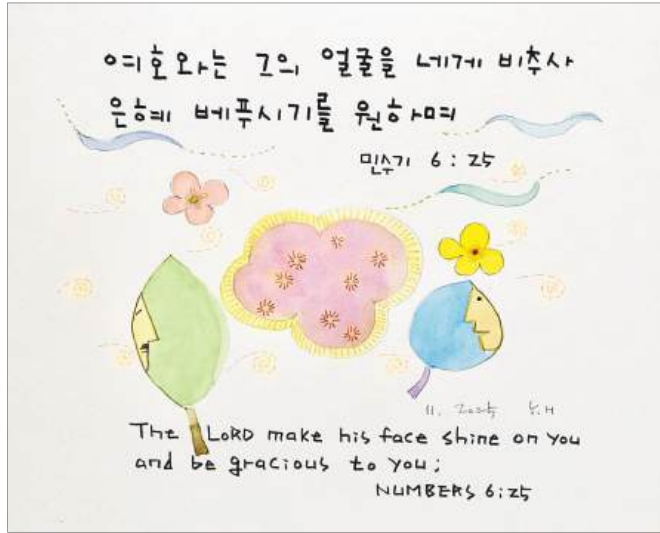 여호와는 그의 얼굴을 네게 비추사
은혜 베푸시기를 원하며
민수기 6:25
The LORD make his face shine on you
and be gracious to you;
NUMBERS 6:25